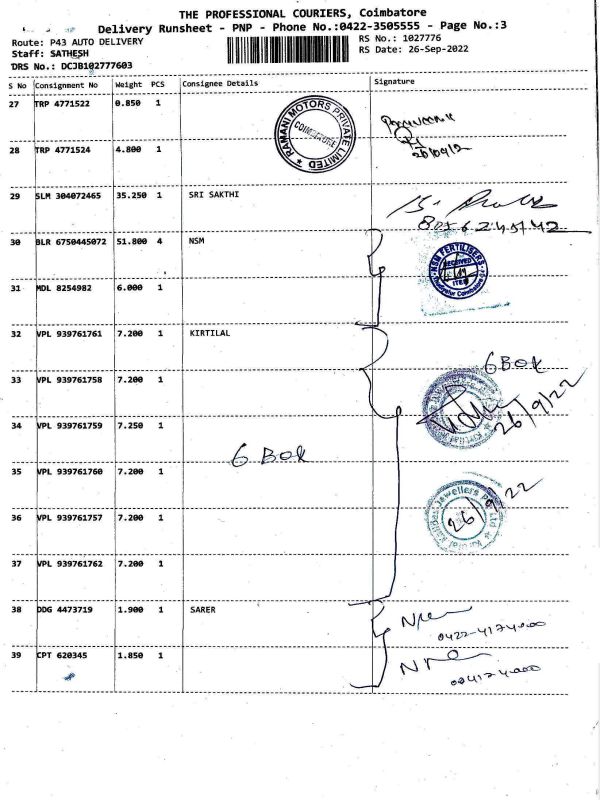 THE PROFESSIONAL COURIERS, Coimbatore
Delivery Runsheet - PNP - Phone No.:0422-3505555 - Page No.:3
Route: P43 AUTO DELIVERY
RS No.: 1027776
Staff: SATHESH
RS Date: 26-Sep-2022
DRS No.: DCJB102777603
S No Consignment No Weight PCS Consignee Details Signature
27 TRP 4771522 0.850 1
RAMANI MOTORS PRIVATE LIMITED
COIMBATORE
28 TRP 4771524 4.800 1
29 SLM 304072465 35.250 1 SRI SAKTHI
30 BLR 6750445072 51.800 4 NSM
NSM FERTILISERS
RECEIVED
ITEM
Coimbatore
31 MDL 8254982 6.000 1
32 VPL 939761761 7.200 1 KIRTILAL
6 BOK
33 VPL 939761758 7.200 1
26/9/22
34 VPL 939761759 7.250 1
6 BOK
35 VPL 939761760 7.200 1
Kirtilal Kalidas Jewellers Pvt Ltd
26/9/22
36 VPL 939761757 7.200 1
37 VPL 939761762 7.200 1
38 DDG 4473719 1.900 1 SARER
0422-4174000
39 CPT 620345 1.850 1